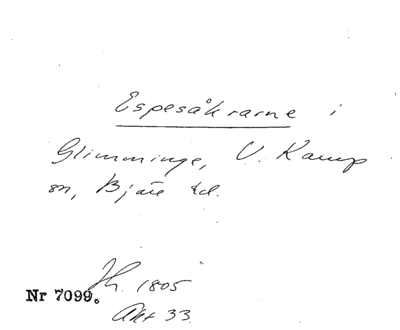 Espesåkrarne i
Glimminge, V. Karup
sn, Bjäre hd.
Jh. 1805
Nr 7099.
Akt 33